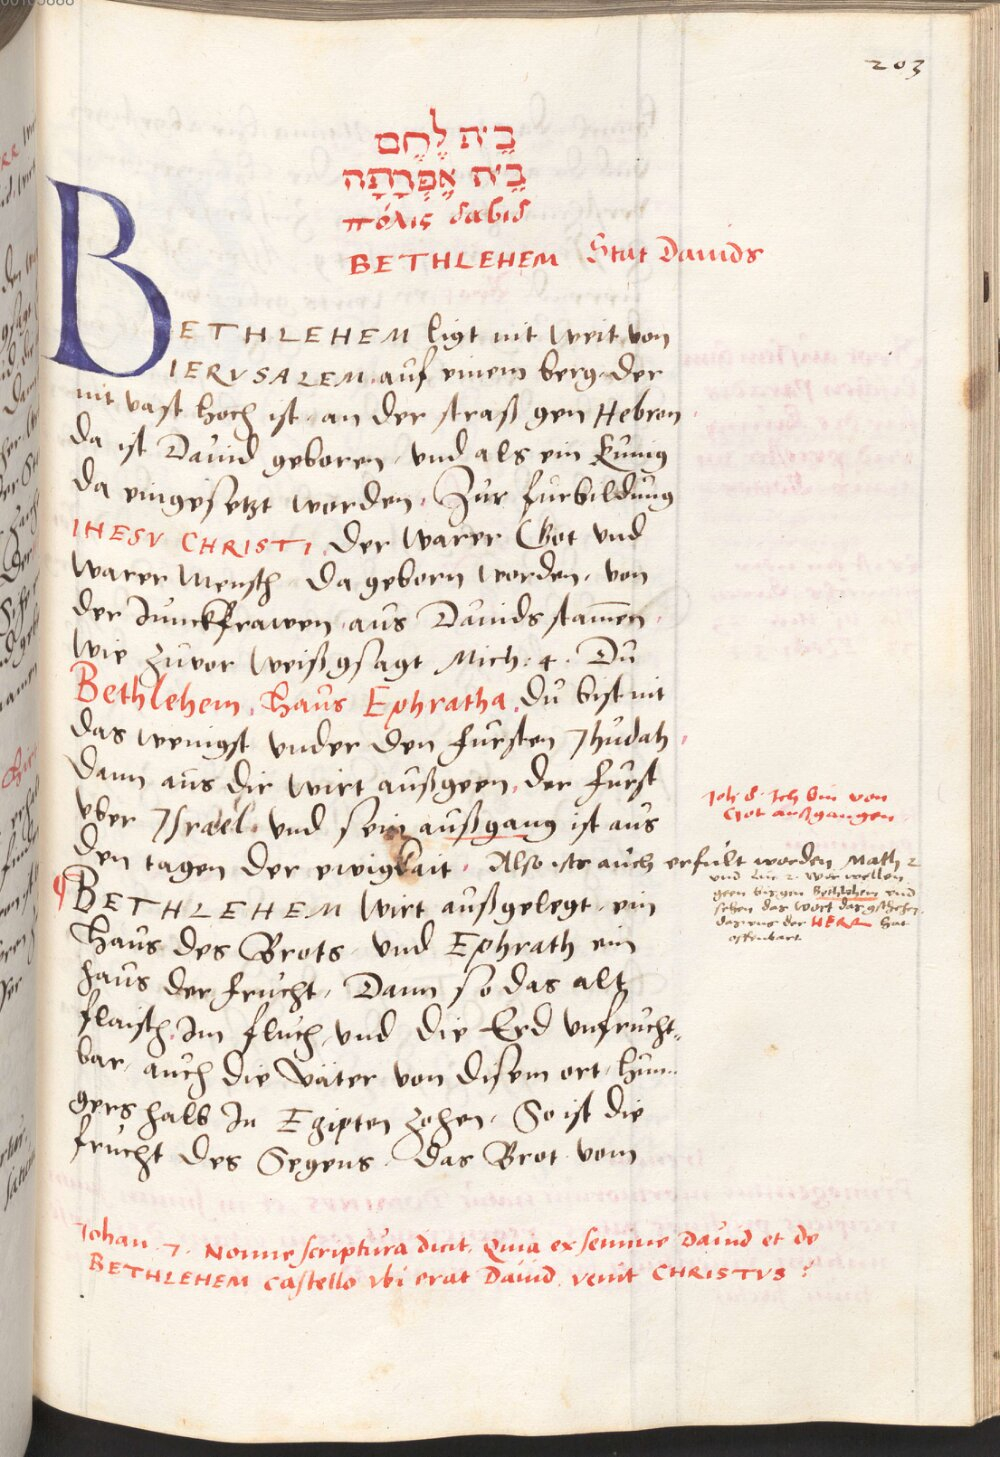 203
בֵּית לֶחֶם
בֵּית אֶפְרָתָה
πόλις δαβιδ
BETHLEHEM Stat Dauids
BETHLEHEM ligt nit weit von
IERVSALEM auf einem berg der
nit vast hoch ist, an der straß gen Hebron
da ist Dauid geboren, vnd als ein Kunig
da eingesetzt worden, Zur furbildung
IHESV CHRISTI, der warer Got vnd
warer Mensch da geborn worden, von
der Junckfrawen, aus Dauids stam̄en,
Wie zuuor weißgsagt Mich: 4. Du
Bethlehem, Haus Ephratha, du bist nit
das wenigst vnder den fursten Jhudah,
Dann aus dir wirt außgeen, der furst
vber Jsrael, vnd sein außgang ist aus
den tagen der ewigkait, Also ists auch erfult worden Math 2
Joh 8. Ich bin von
Got außgangen
vnd Luc 2. Wir wellen
geen bis gen Bethlehem vnd
sehen das wort das gschehen,
das vns der HERR hat
offenbart
BETHLEHEM wirt außgelegt, ein
Haus des Brots, vnd Ephrath ein
haus der frucht, Dann so das alt
flaisch im fluch, vnd die Erd vnfrucht-
bar, auch die Väter von disem ort, hun-
gers halb In Egipten zohen, So ist die
frucht des Segens, das Brot vom
Johan. 7. Nonne scriptura dicit, Quia ex semine Dauid et de
BETHLEHEM castello vbi erat Dauid, venit CHRISTVS?